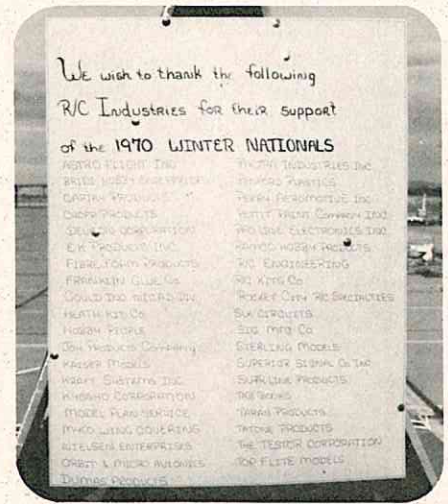 We wish to thank the following
R/C Industries for their support
of the 1970 WINTER NATIONALS
ASTRO FLIGHT INC
CARTAY PRODUCTS
PRODUCTS
CORPORATION
E.K. PRODUCTS INC.
FIBRE FOAM PRODUCTS
FRANKLIN GLUE Co
GOULD INC NICAD DIV.
HEATH KIT Co
HOBBY PEOPLE
PRODUCTS COMPANY
KAISER MODELS
KRAFT SYSTEMS INC.
KYOSHO CORPORATION
MODEL PLAN SERVICE
WING COVERING
NIELSEN ENTERPRISES
ORBIT & MICRO AVIONICS
DUMAS PRODUCTS
INDUSTRIES INC
PLASTICS
PERRY AEROMOTIVE INC
PETTIT PAINT COMPANY INC
PRO LINE ELECTRONICS INC
HOBBY PRODUCTS
R/C ENGINEERING
R/C KITS Co
ROCKET CITY R/C SPECIALTIES
CIRCUITS
SIG MFG Co
STERLING MODELS
SUPERIOR SIGNAL Co INC
PRODUCTS
TAB BOOKS
PRODUCTS
TATONE PRODUCTS
THE TESTOR CORPORATION
TOP FLITE MODELS